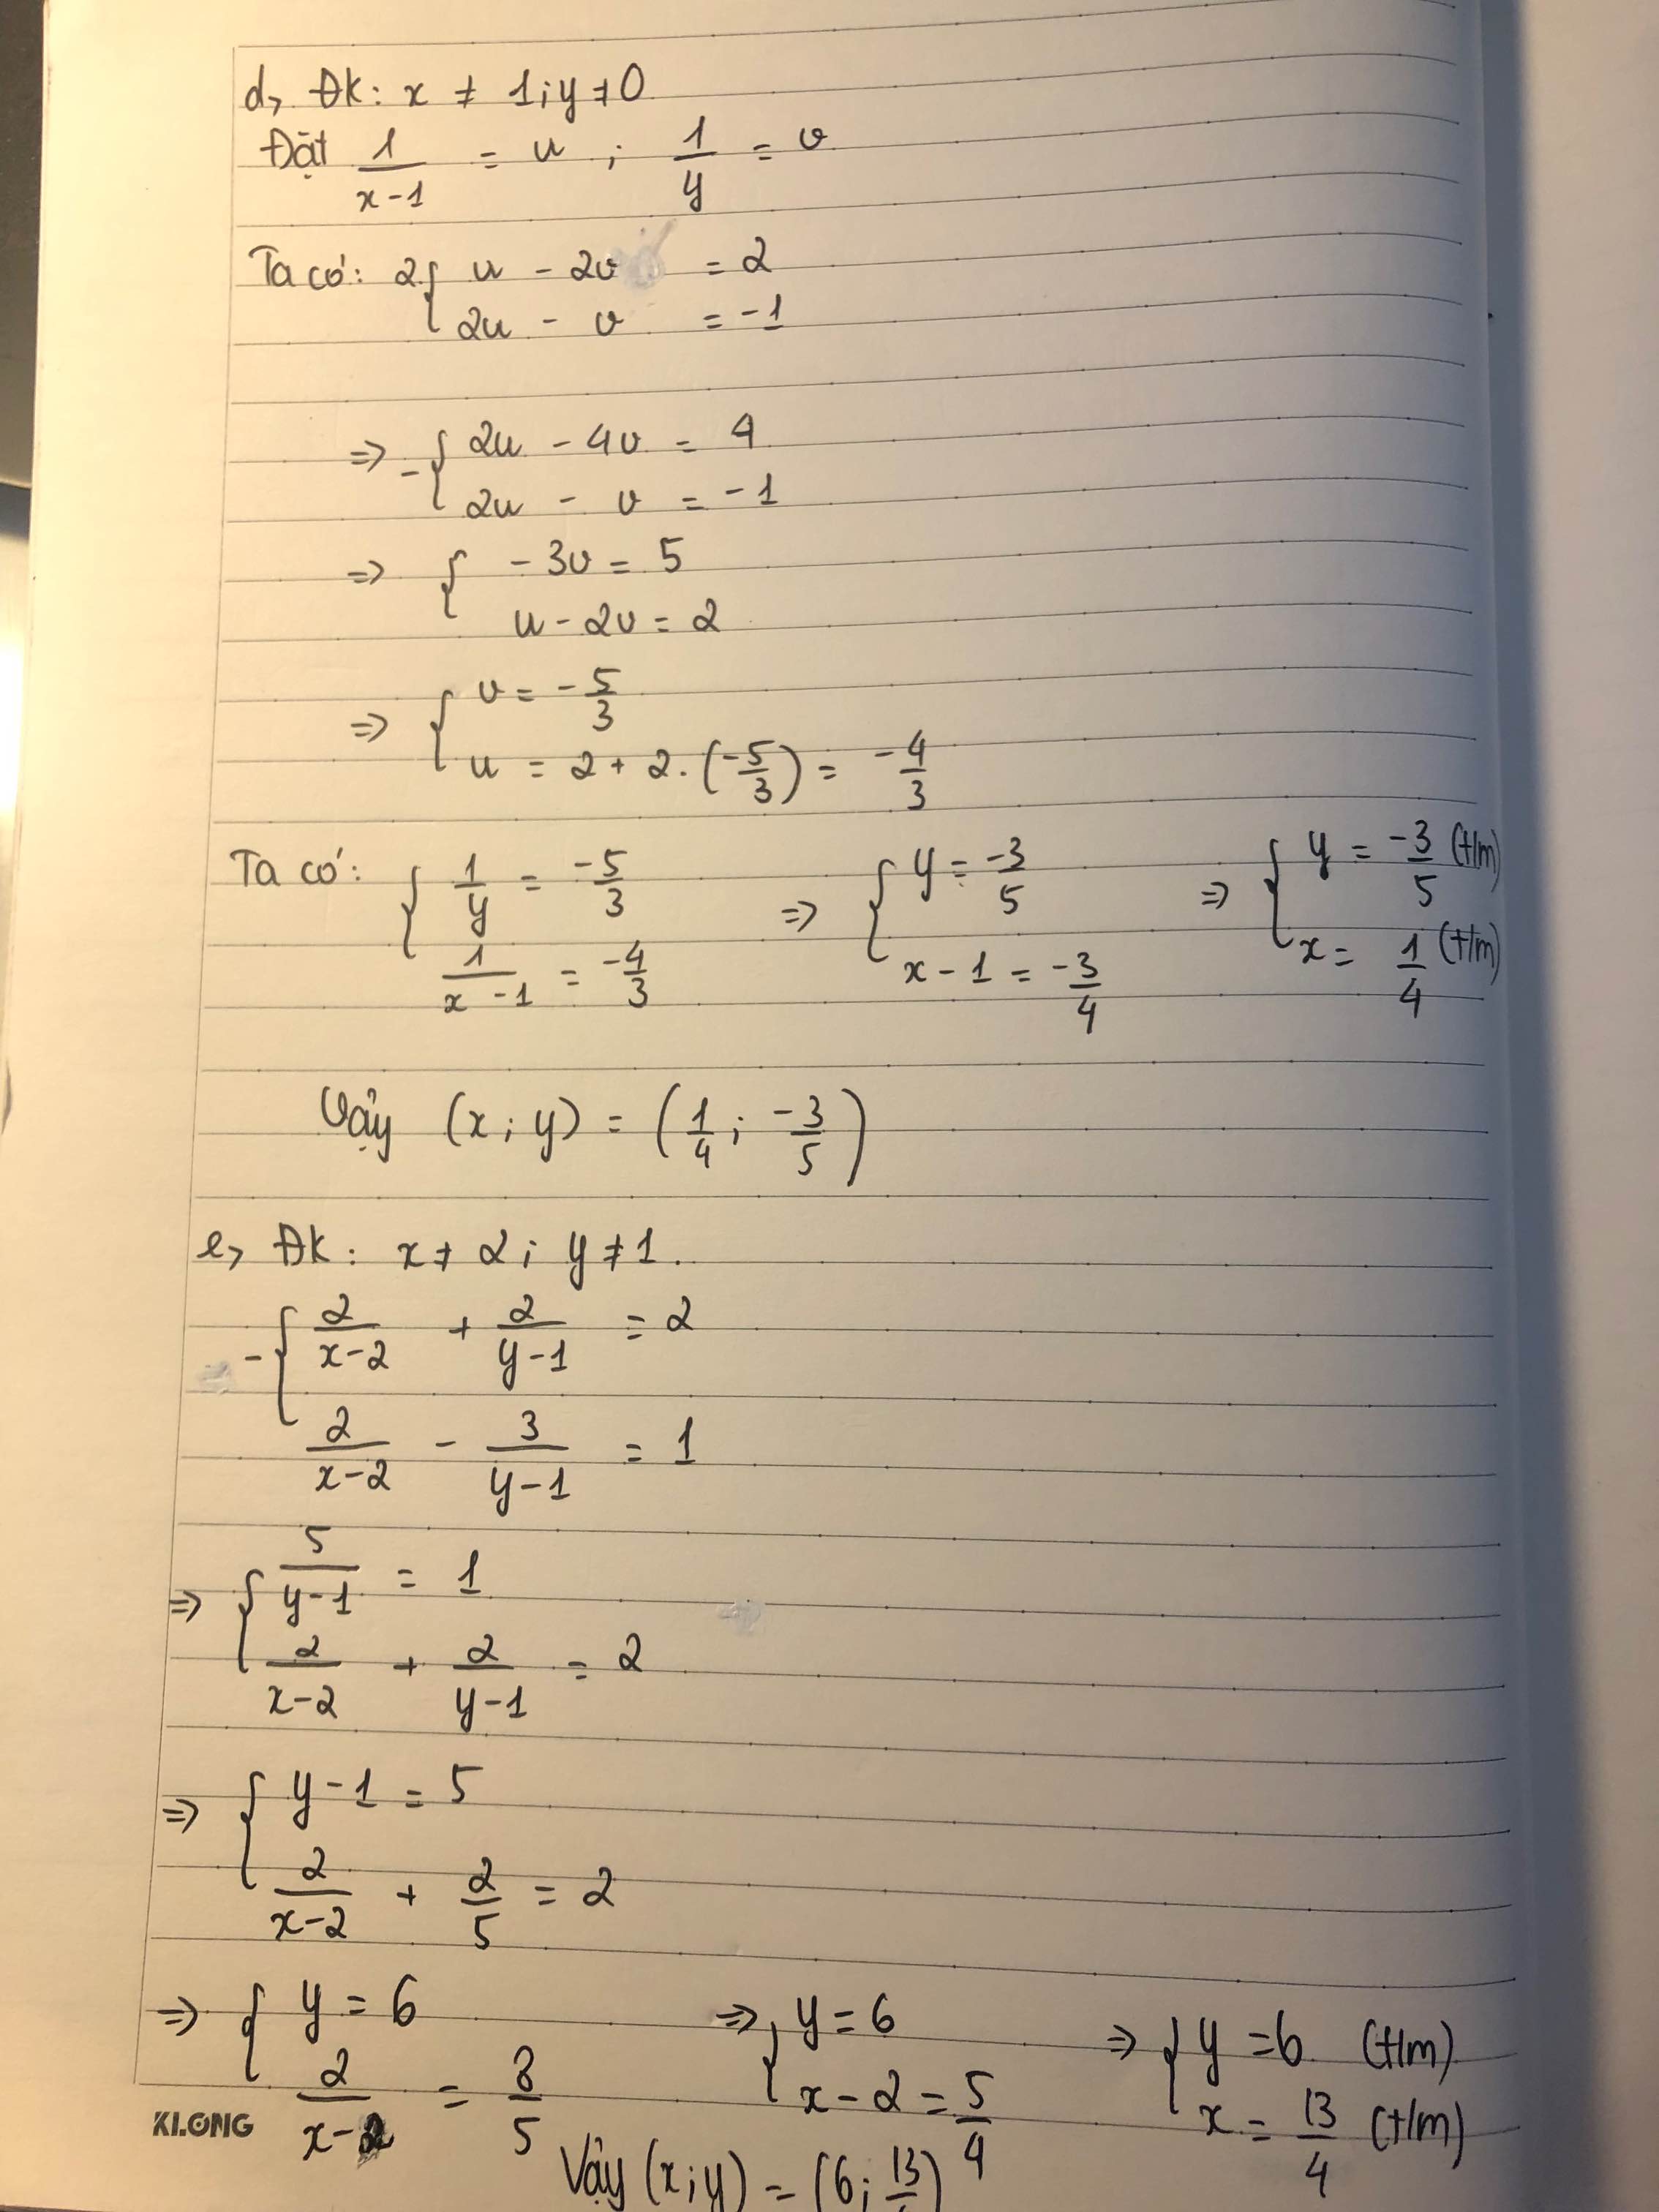 d, ĐK: x ≠ 1; y ≠ 0
Đặt 1/(x-1) = u ; 1/y = v
Ta có: 2{ u - 2v = 2
2u - v = -1
=> -{ 2u - 4v = 4
2u - v = -1
=> { -3v = 5
u - 2v = 2
=> { v = -5/3
u = 2 + 2.(-5/3) = -4/3
Ta có: { 1/y = -5/3 => { y = -3/5 => { y = -3/5 (t/m)
1/(x-1) = -4/3 x - 1 = -3/4 x = 1/4 (t/m)
Vậy (x; y) = (1/4; -3/5)
e, ĐK: x ≠ 2; y ≠ 1.
-{ 2/(x-2) + 2/(y-1) = 2
2/(x-2) - 3/(y-1) = 1
=> { 5/(y-1) = 1
2/(x-2) + 2/(y-1) = 2
=> { y-1 = 5
2/(x-2) + 2/5 = 2
=> { y = 6 => { y = 6 => { y = 6 (t/m)
2/(x-2) = 8/5 x - 2 = 5/4 x = 13/4 (t/m)
KLONG
Vậy (x; y) = (6; 13/